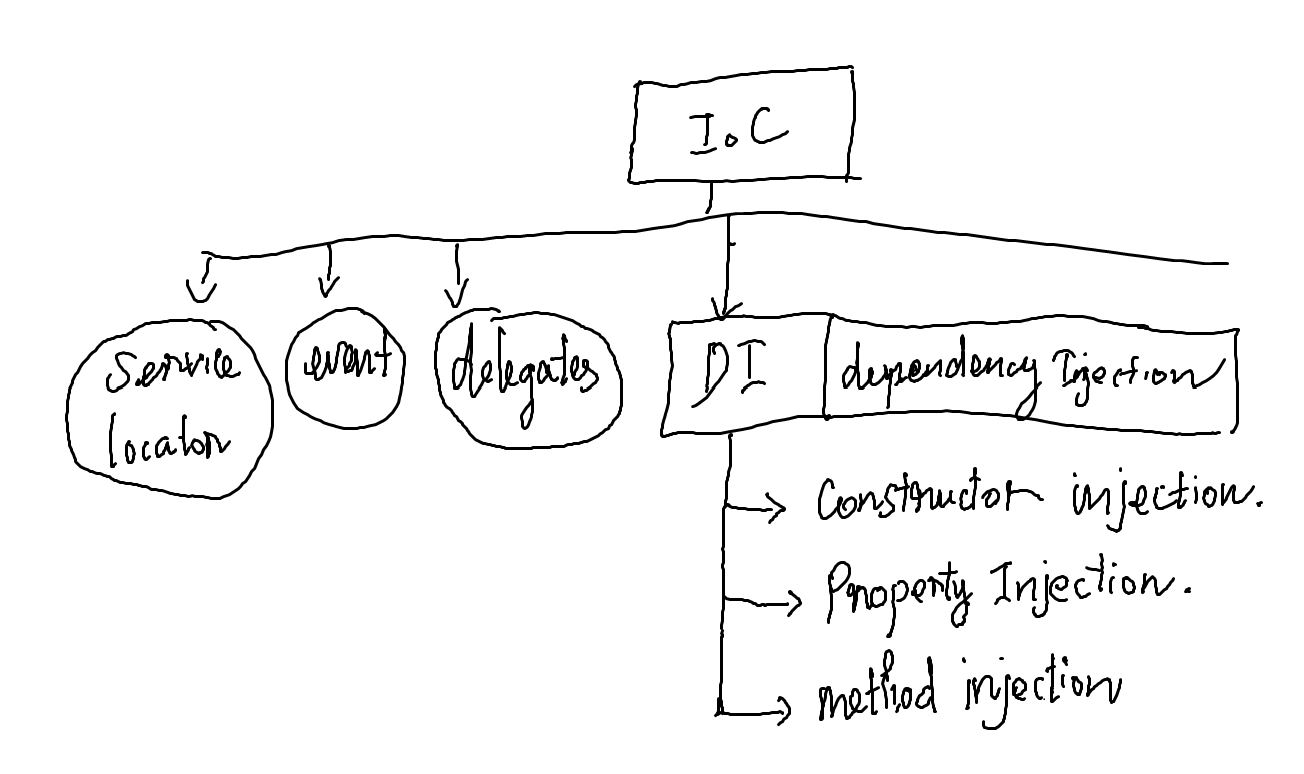 IoC
Service
locator
event
delegates
DI
dependency Injection
Constructor injection.
Property Injection.
method injection